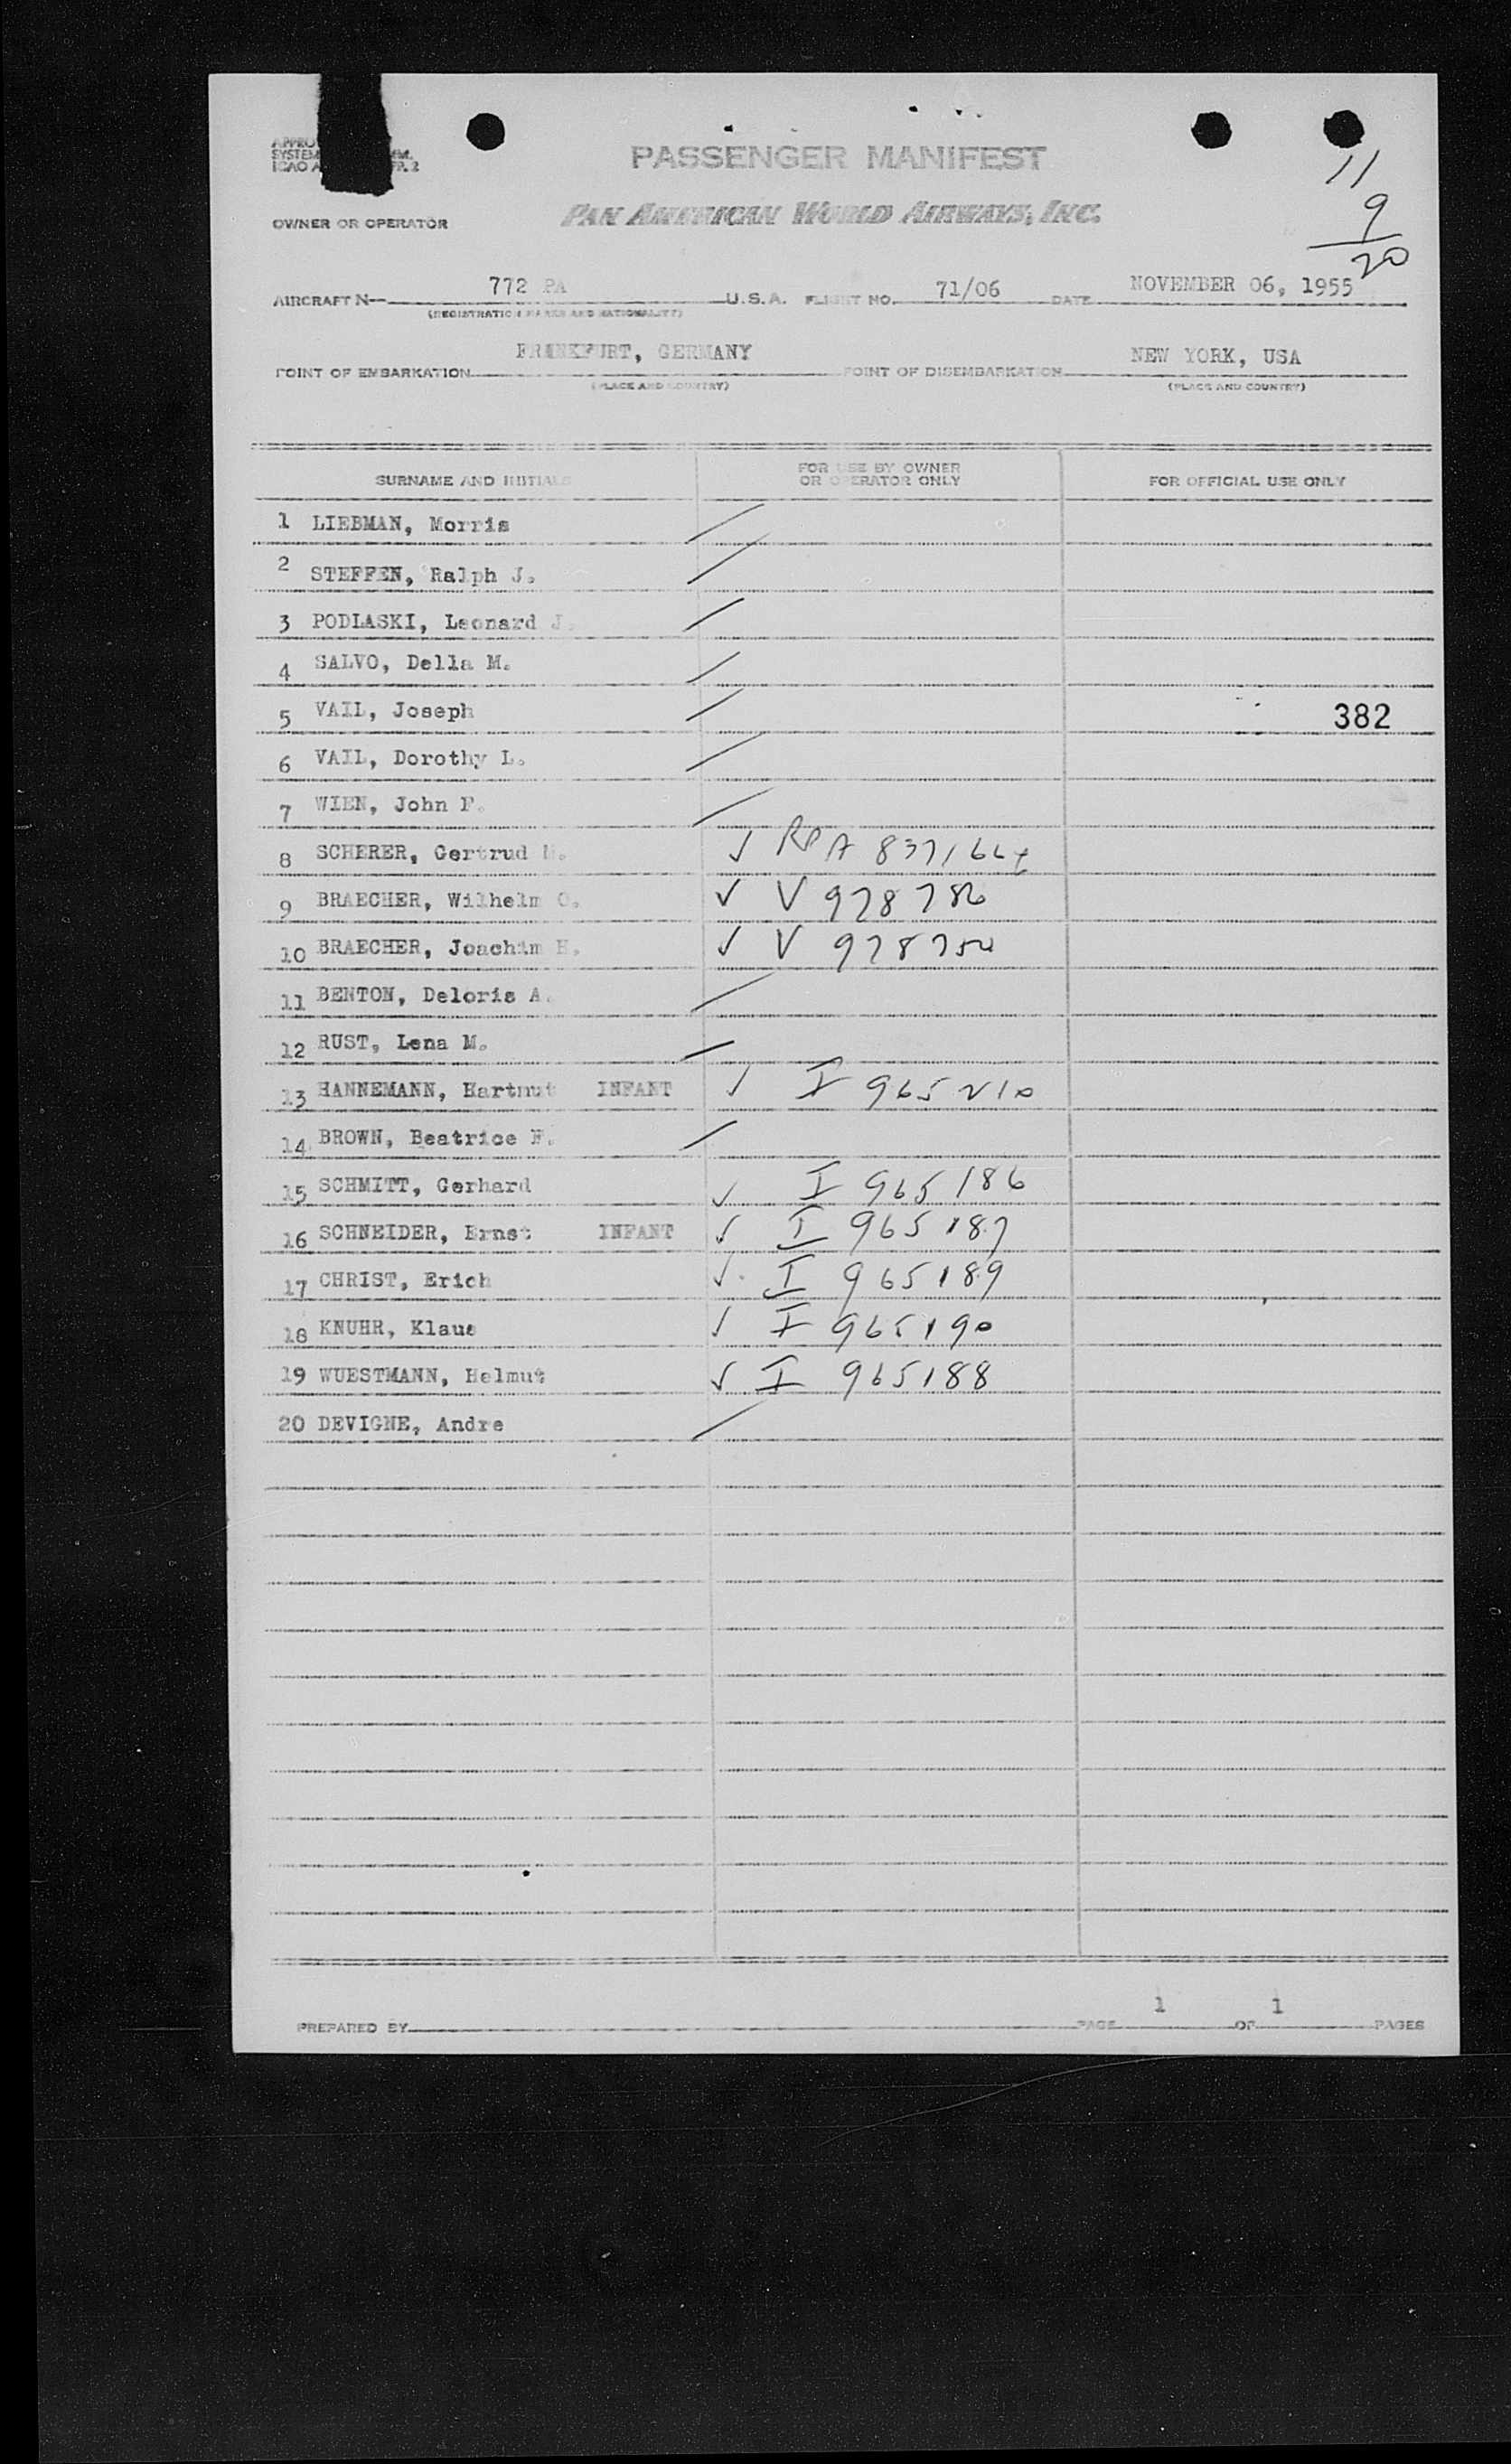 PASSENGER MANIFEST
11
PAN AMERICAN WORLD AIRWAYS, INC.
9
OWNER OR OPERATOR
20
AIRCRAFT N— 772 PA U.S.A. FLIGHT NO. 71/06 DATE NOVEMBER 06, 1955
(REGISTRATION MARKS AND NATIONALITY)
POINT OF EMBARKATION FRANKFURT, GERMANY POINT OF DISEMBARKATION NEW YORK, USA
(PLACE AND COUNTRY) (PLACE AND COUNTRY)
SURNAME AND INITIALS FOR USE BY OWNER OR OPERATOR ONLY FOR OFFICIAL USE ONLY
1 LIEBMAN, Morris /
2 STEFFEN, Ralph J. /
3 PODLASKI, Leonard J. /
4 SALVO, Della M. /
5 VAIL, Joseph / 382
6 VAIL, Dorothy L. /
7 WIEN, John F. /
8 SCHERER, Gertrud ✓
9 BRAECHER, Wilhelm O. ✓ V 978786
10 BRAECHER, Joachim H. ✓ V
11 BENTON, Deloris A. /
12 RUST, Lena M. /
13 HANNEMANN, Hartmut INFANT ✓ I 965210
14 BROWN, Beatrice F. /
15 SCHMITT, Gerhard ✓ I 965186
16 SCHNEIDER, Ernst INFANT ✓ I 965187
17 CHRIST, Erich ✓ I 965189
18 KNUHR, Klaus ✓ I 965190
19 WUESTMANN, Helmut ✓ I 965188
20 DEVIGNE, Andre /
PREPARED BY PAGE 1 OF 1 PAGES